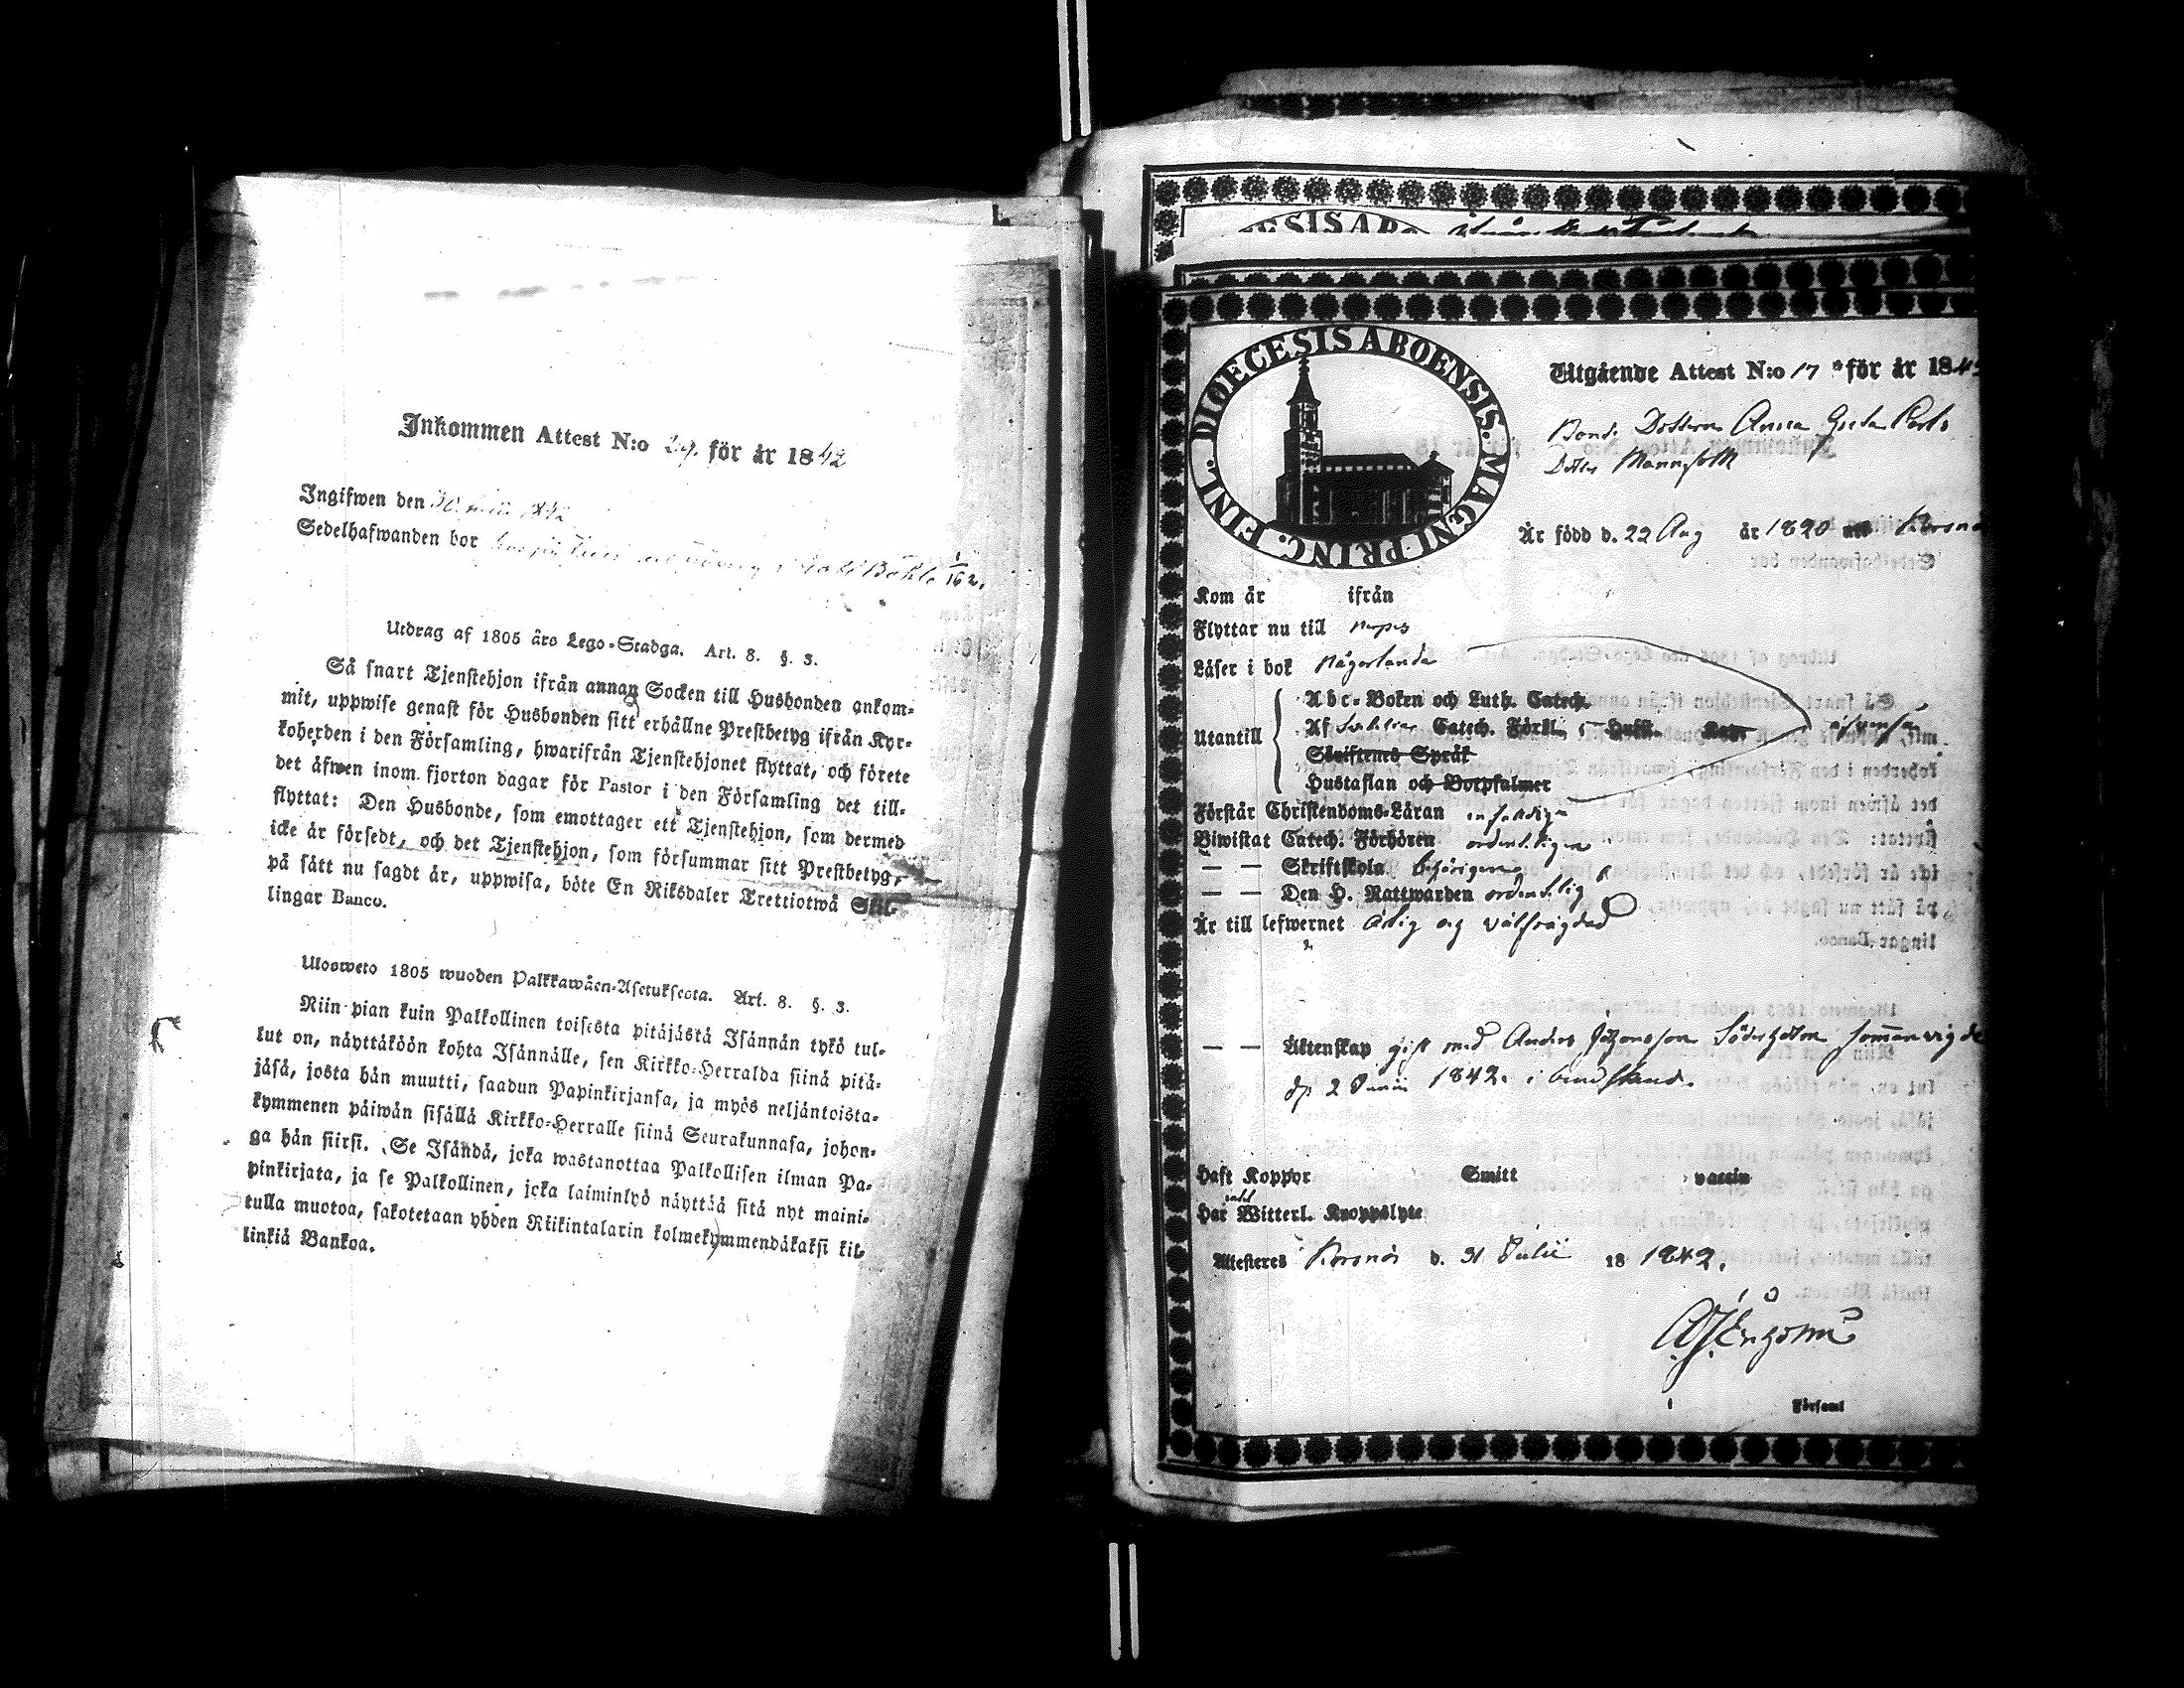 Inkommen Attest N:o 29. för år 1842
Ingifwen den 30 1842
Sedelhafwanden bor Böhle 1/162.
Utdrag af 1805 års Lego-Stadga. Art. 8. §. 3.
Så snart Tjenstehjon ifrån annan Socken till Husbonden ankom-
mit, uppwise genast för Husbonden sitt erhållne Prestbetyg ifrån Kyr-
koherden i den Församling, hwarifrån Tjenstehjonet flyttat, och förete
det äfwen inom fjorton dagar för Pastor i den Församling det till-
flyttat: Den Husbonde, som emottager ett Tjenstehjon, som dermed
icke är försedt, och det Tjenstehjon, som försummar sitt Prestbetyg,
på sätt nu sagdt är, uppwisa, böte En Riksdaler Trettiotwå Skil-
lingar Banco.
Ulosweto 1805 wuoden Palkkawäen-Asetuksesta. Art. 8. §. 3.
Niin pian kuin Palkollinen toisesta pitäjästä Isännän tykö tul-
lut on, näyttäköön kohta Isännälle, sen Kirkko-Herralda siinä pitä-
jäsä, josta hän muutti, saadun Papinkirjansa, ja myös neljäntoista-
kymmenen päiwän sisällä Kirkko-Herralle siinä Seurakunnasa, johon-
ga hän siirsi. Se Isändä, joka wastanottaa Palkollisen ilman Pa-
pinkirjata, ja se Palkollinen, joka laiminlyö näyttää sitä nyt maini-
tulla muotoa, sakotetaan yhden Riikintalarin kolmekymmendäkaksi kil-
linkiä Bankoa.
DIOECESIS ABOENSIS. MAGNI PRINC. FINL.
Utgående Attest N:o 17 för år 184
Bond. Dottern Anna Greta Carls
Dotter Mannfolk
Är född d. 22 Aug år 1820 Korsnä
Kom år ifrån
Flyttar nu till
Läser i bok någorlunda
Utantill
Abc-Boken och Luth. Catech.
Af Catech. Förkl.
Skriftenes Språk
Hustaflan och Botpsalmer
Förstår Christendoms-Läran
Biwistat Catech. Förhören ordentligen
— — Skriftskola behörigen
— — Den H. Nattwarden ordentlig
Är till lefwernet ärlig og välfrägdad
— — Äktenskap gift med Anders Söderholm sommanvigde
d. 2 Junii 1842. i
Haft Koppor Smitt vaccin
Har Witterl. Kroppslyte
Attesteres Korsnäs d. 31 Julii 18 1842.
Församl